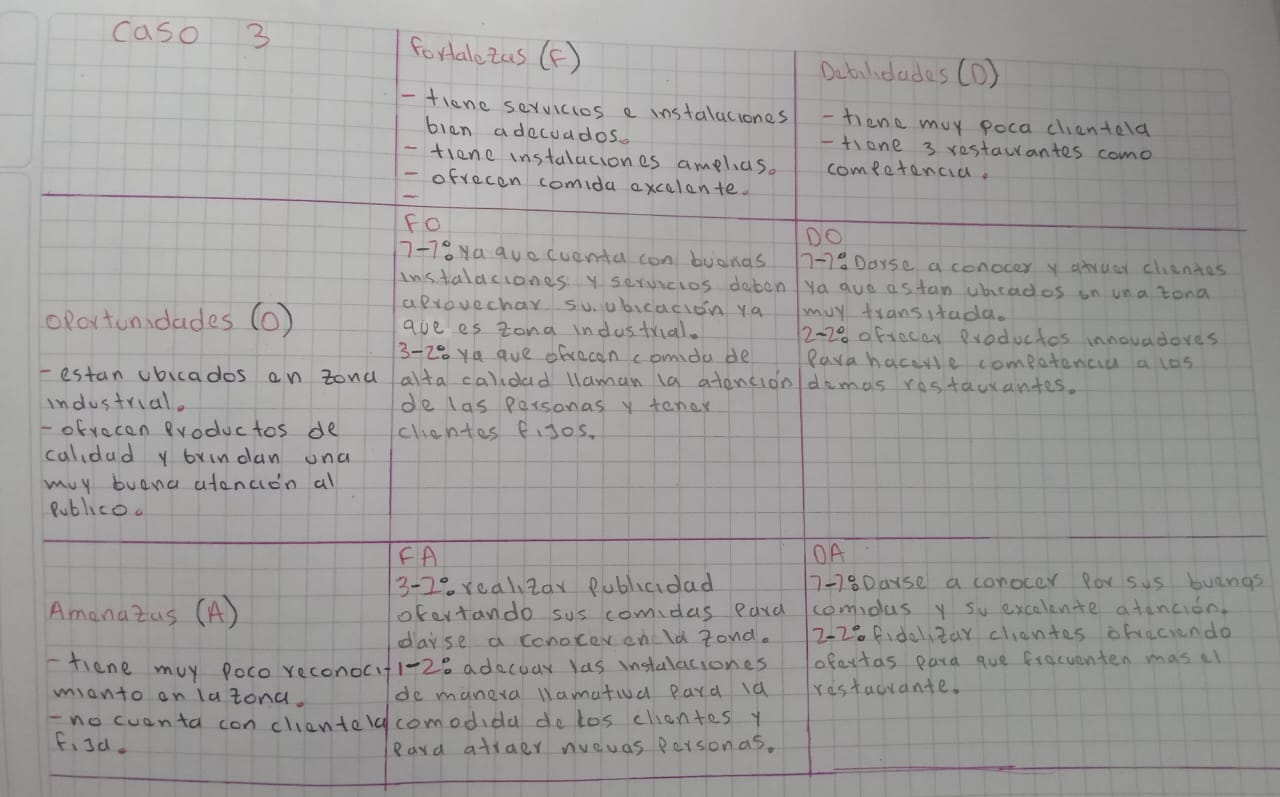 Caso 3
Fortalezas (F)
- tiene servicios e instalaciones
bien adecuados.
- tiene instalaciones amplias.
- ofrecen comida excelente.
-
Debilidades (D)
- tiene muy poca clientela
- tiene 3 restaurantes como
competencia.
Oportunidades (O)
- estan ubicados en zona
industrial.
- ofrecen productos de
calidad y brindan una
muy buena atención al
publico.
FO
1-1: ya que cuenta con buenas
instalaciones y servicios deben
aprovechar su ubicación ya
que es zona industrial.
3-2: ya que ofrecen comida de
alta calidad llaman la atención
de las personas y tener
clientes fijos.
DO
1-1: Darse a conocer y atraer clientes
ya que estan ubicados en una zona
muy transitada.
2-2: ofrecer productos innovadores
para hacerle competencia a los
demas restaurantes.
Amenazas (A)
- tiene muy poco reconoci
miento en la zona.
- no cuenta con clientela
fija.
FA
3-1: realizar publicidad
ofertando sus comidas para
darse a conocer en la zona.
1-2: adecuar las instalaciones
de manera llamativa para la
comodida de los clientes y
para atraer nuevas personas.
DA
1-1: Darse a conocer por sus buenas
comidas y su excelente atención.
2-2: fidelizar clientes ofreciendo
ofertas para que frecuenten mas el
restaurante.